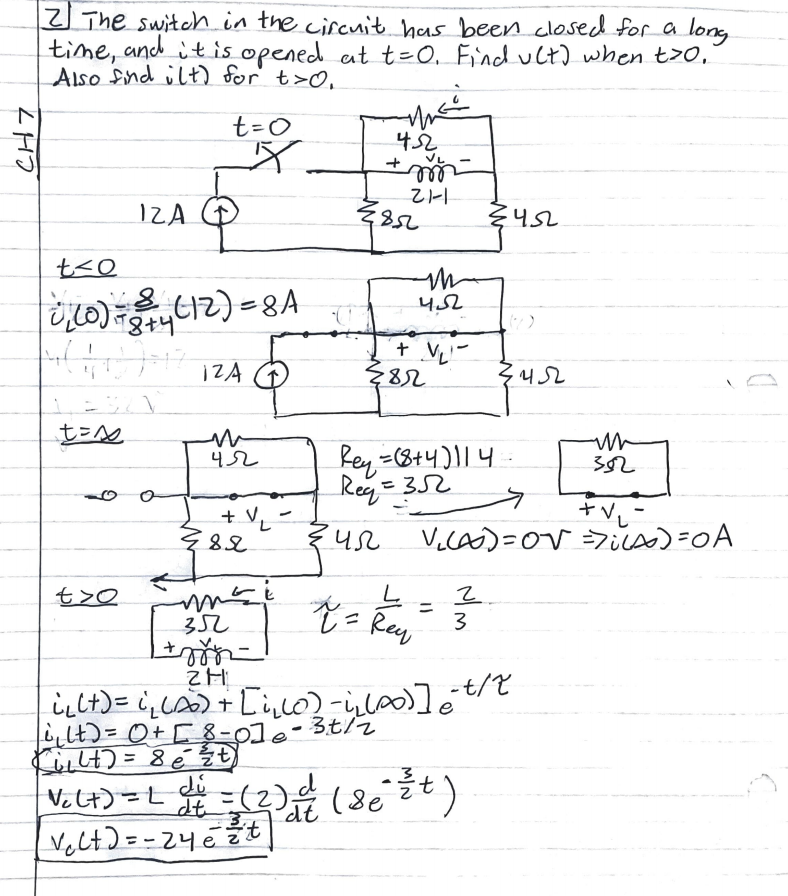 2] The switch in the circuit has been closed for a long
time, and it is opened at t=0. Find v(t) when t>0.
Also find i(t) for t>0.
CH 7
t=0
i
4Ω
+ VL -
2H
12A
8Ω
4Ω
t<0
iL(0) = 8/(8+4) (12) = 8A
4Ω
+ VL -
12A
8Ω
4Ω
t=∞
4Ω
+ VL -
8Ω
4Ω
Req = (8+4)||4
Req = 3Ω
3Ω
+ VL -
VL(∞) = 0V => i(∞) = 0A
t>0
i
3Ω
+ VL -
2H
τ = L/Req = 2/3
iL(t) = iL(∞) + [iL(0) - iL(∞)] e^-t/τ
iL(t) = 0 + [8-0] e^-3t/2
iL(t) = 8e^-3/2 t
Vc(t) = L di/dt = (2) d/dt (8e^-3/2 t)
Vc(t) = -24e^-3/2 t